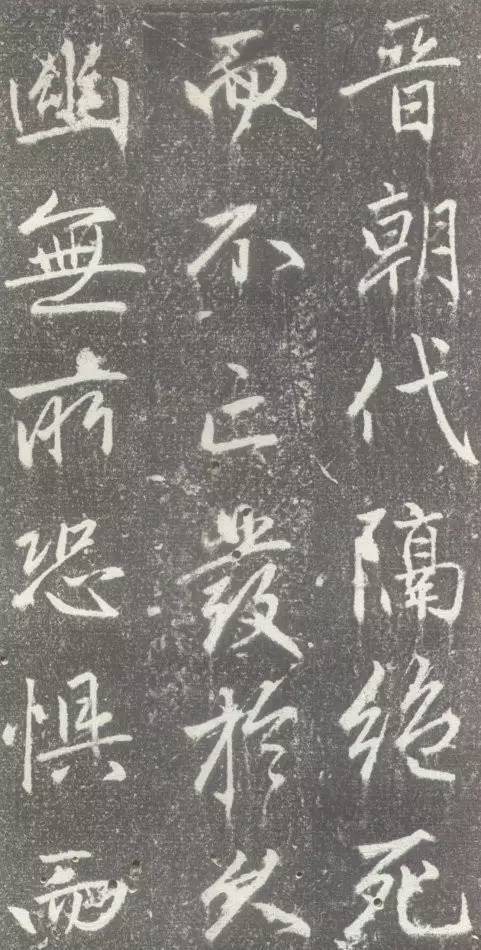 晉朝代隔絕死
而不亡發於久
幽無所恐懼而